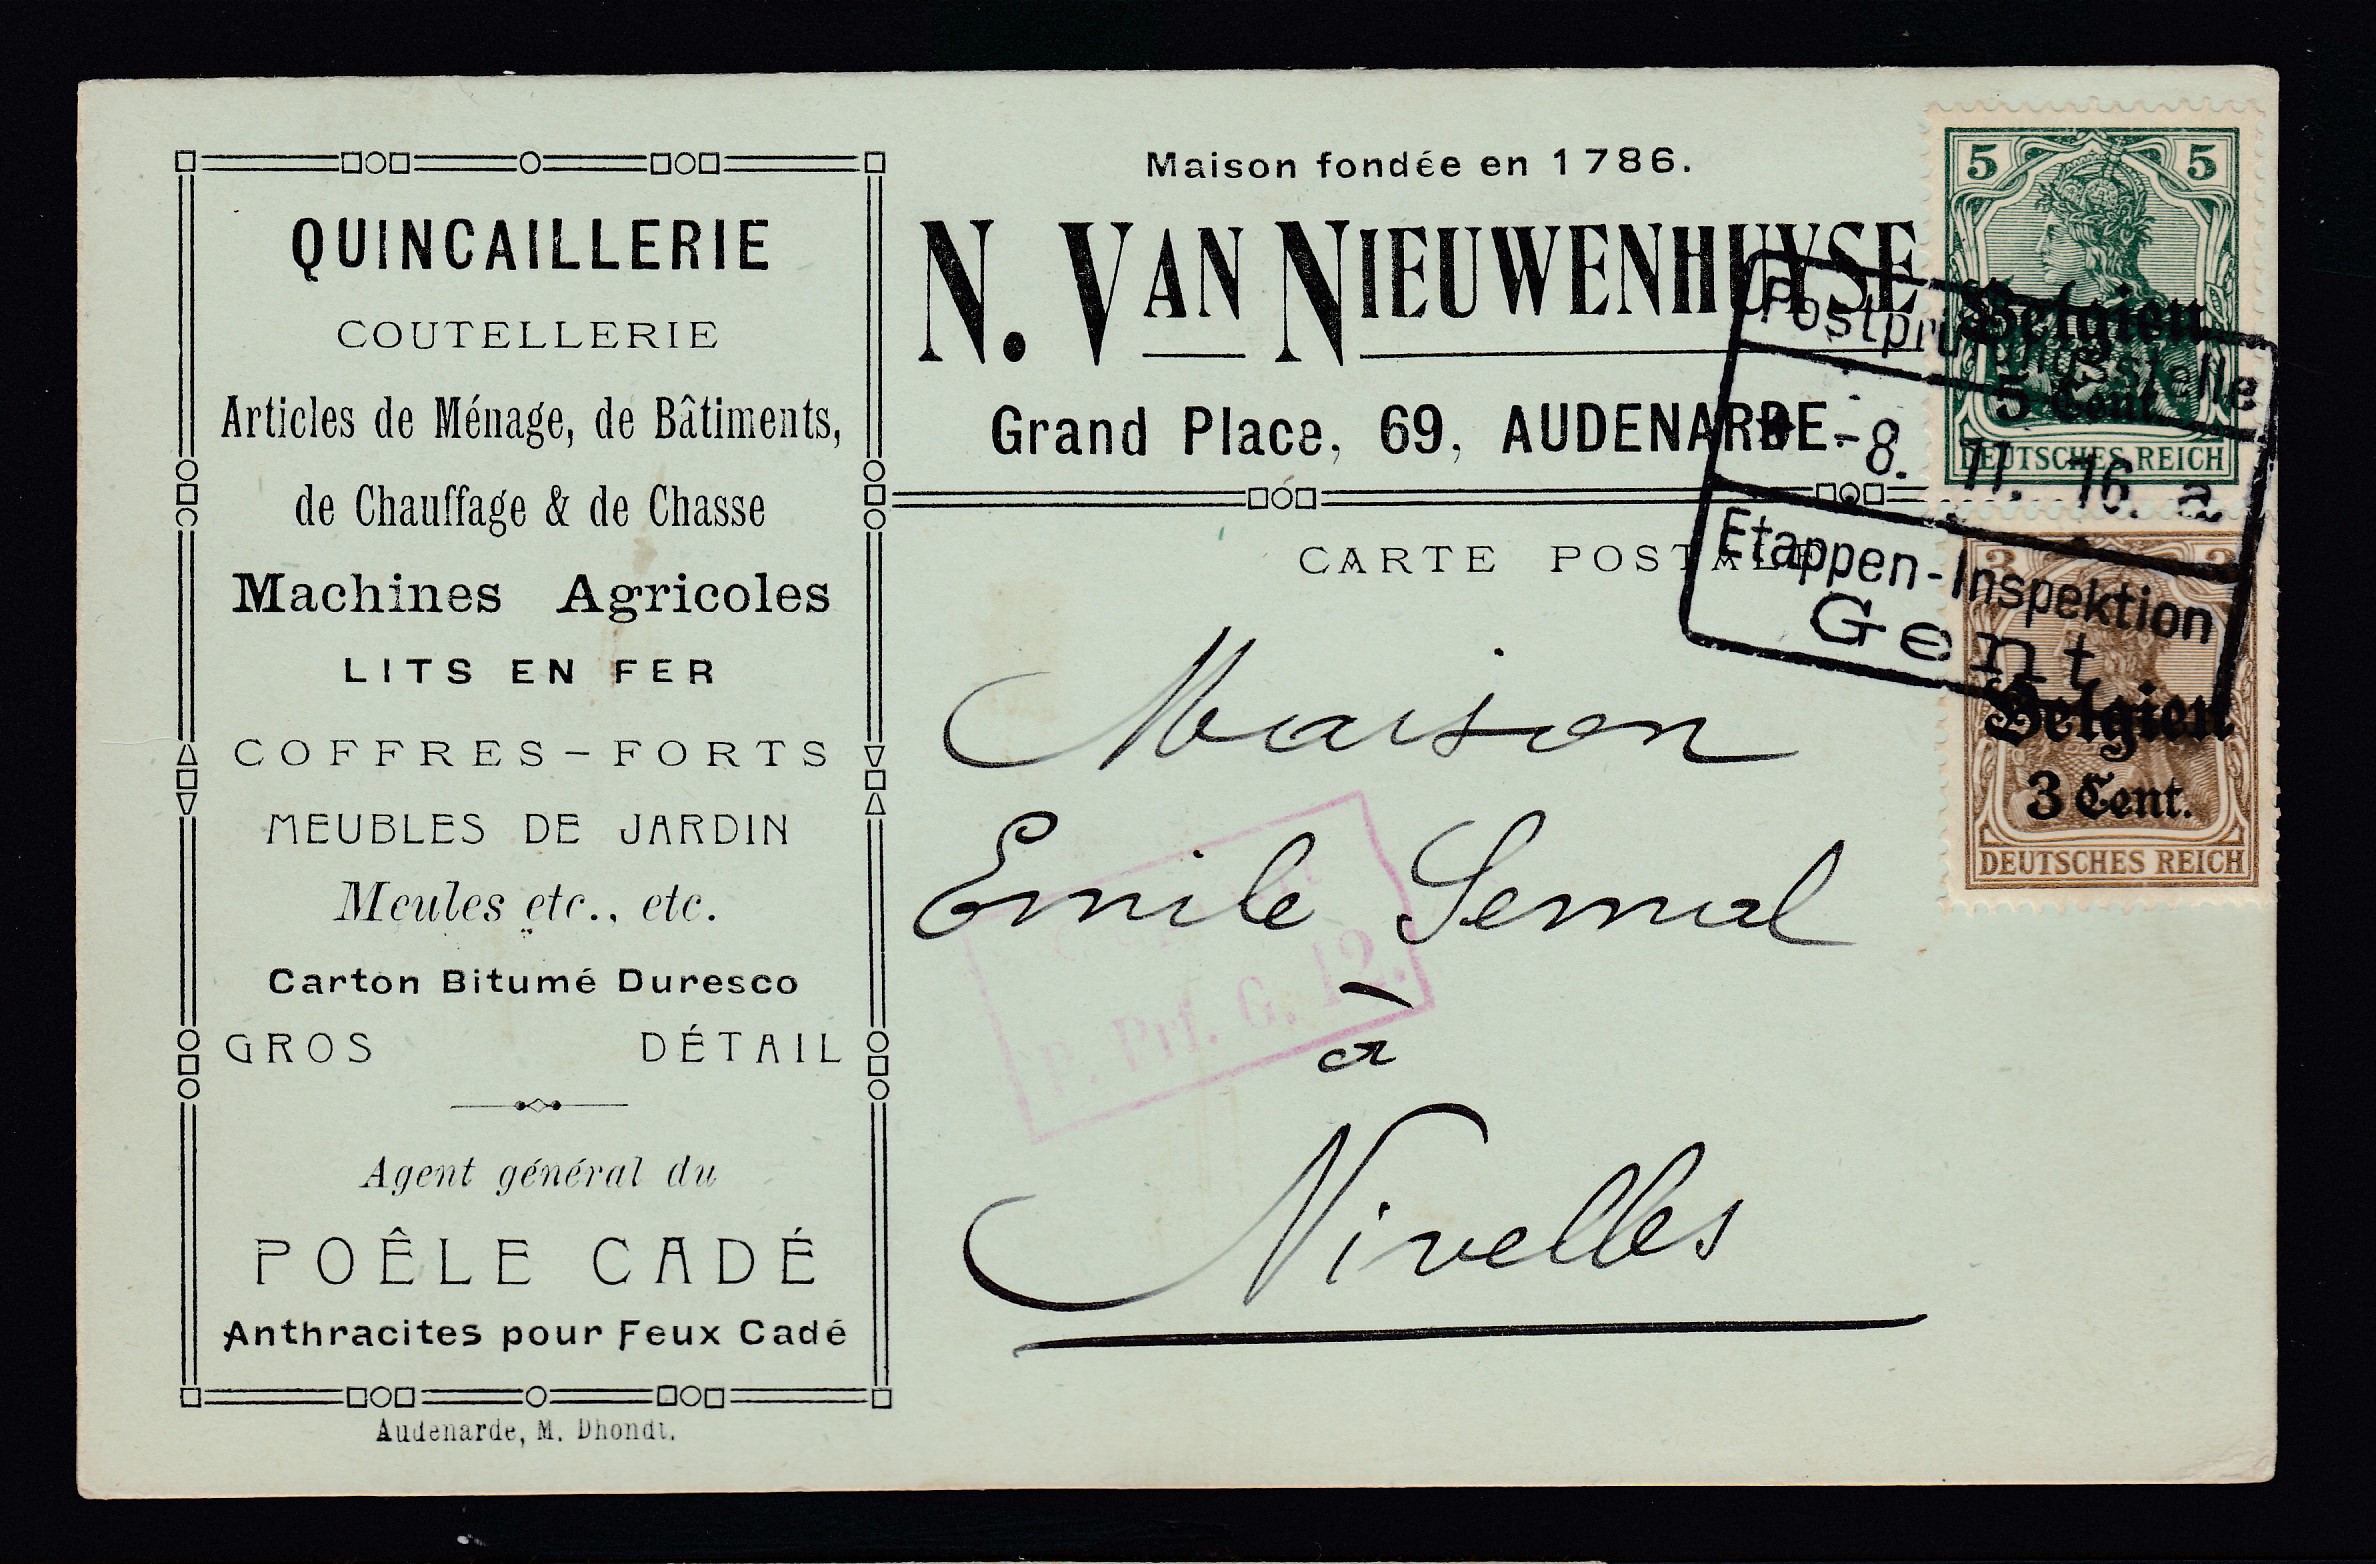 QUINCAILLERIE
COUTELLERIE
Articles de Ménage, de Bâtiments,
de Chauffage & de Chasse
Machines Agricoles
LITS EN FER
COFFRES-FORTS
MEUBLES DE JARDIN
Meules etc., etc.
Carton Bitumé Duresco
GROS DÉTAIL
Agent général du
POÊLE CADÉ
Anthracites pour Feux Cadé
Audenarde, M. Dhondt.
Maison fondée en 1786.
N. VAN NIEUWENHUYSE
Grand Place, 69, AUDENARDE
CARTE POSTALE
Maison
Emile Semal
à
Nivelles
P. Prf. G. 12.
Postprüfungsstelle
-8. 11. 16. a
Etappen-Inspektion
Gent
5 5
Belgien
5 Cent.
DEUTSCHES REICH
3 3
Belgien
3 Cent.
DEUTSCHES REICH